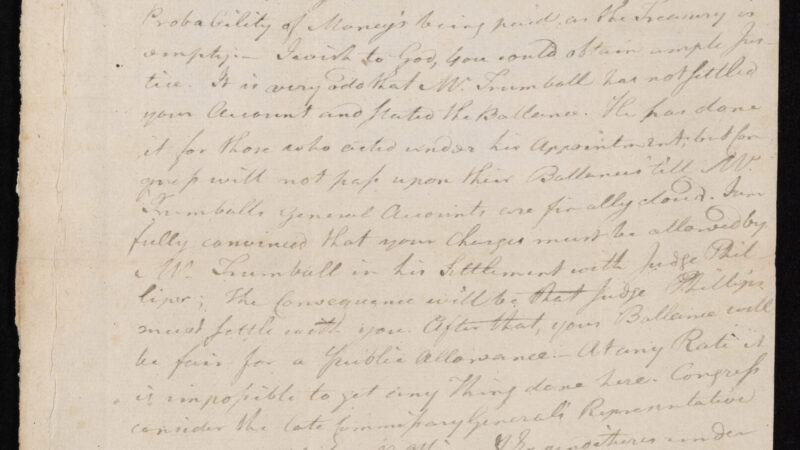 Probability of Money's being paid, as the Treasury is
empty.— I wish to God, you could obtain ample Jus-
tice. It is very odd that Mr. Trumball has not settled
your Account and stated the Ballance. He has done
it for those who acted under his Appointment; but Con-
gress will not pass upon their Ballances till Mr.
Trumballs General Accounts are finally closed. I am
fully convinced that your Charges must be allowed by
Mr. Trumball in his Settlement with Judge Phil-
lips; the Consequence will be that Judge Phillips
must settle with you. After that, your Ballance will
be fair for a public Allowance.— At any Rate it
is impossible to get any Thing done here. Congress
consider the late Commissary General's Representative
under